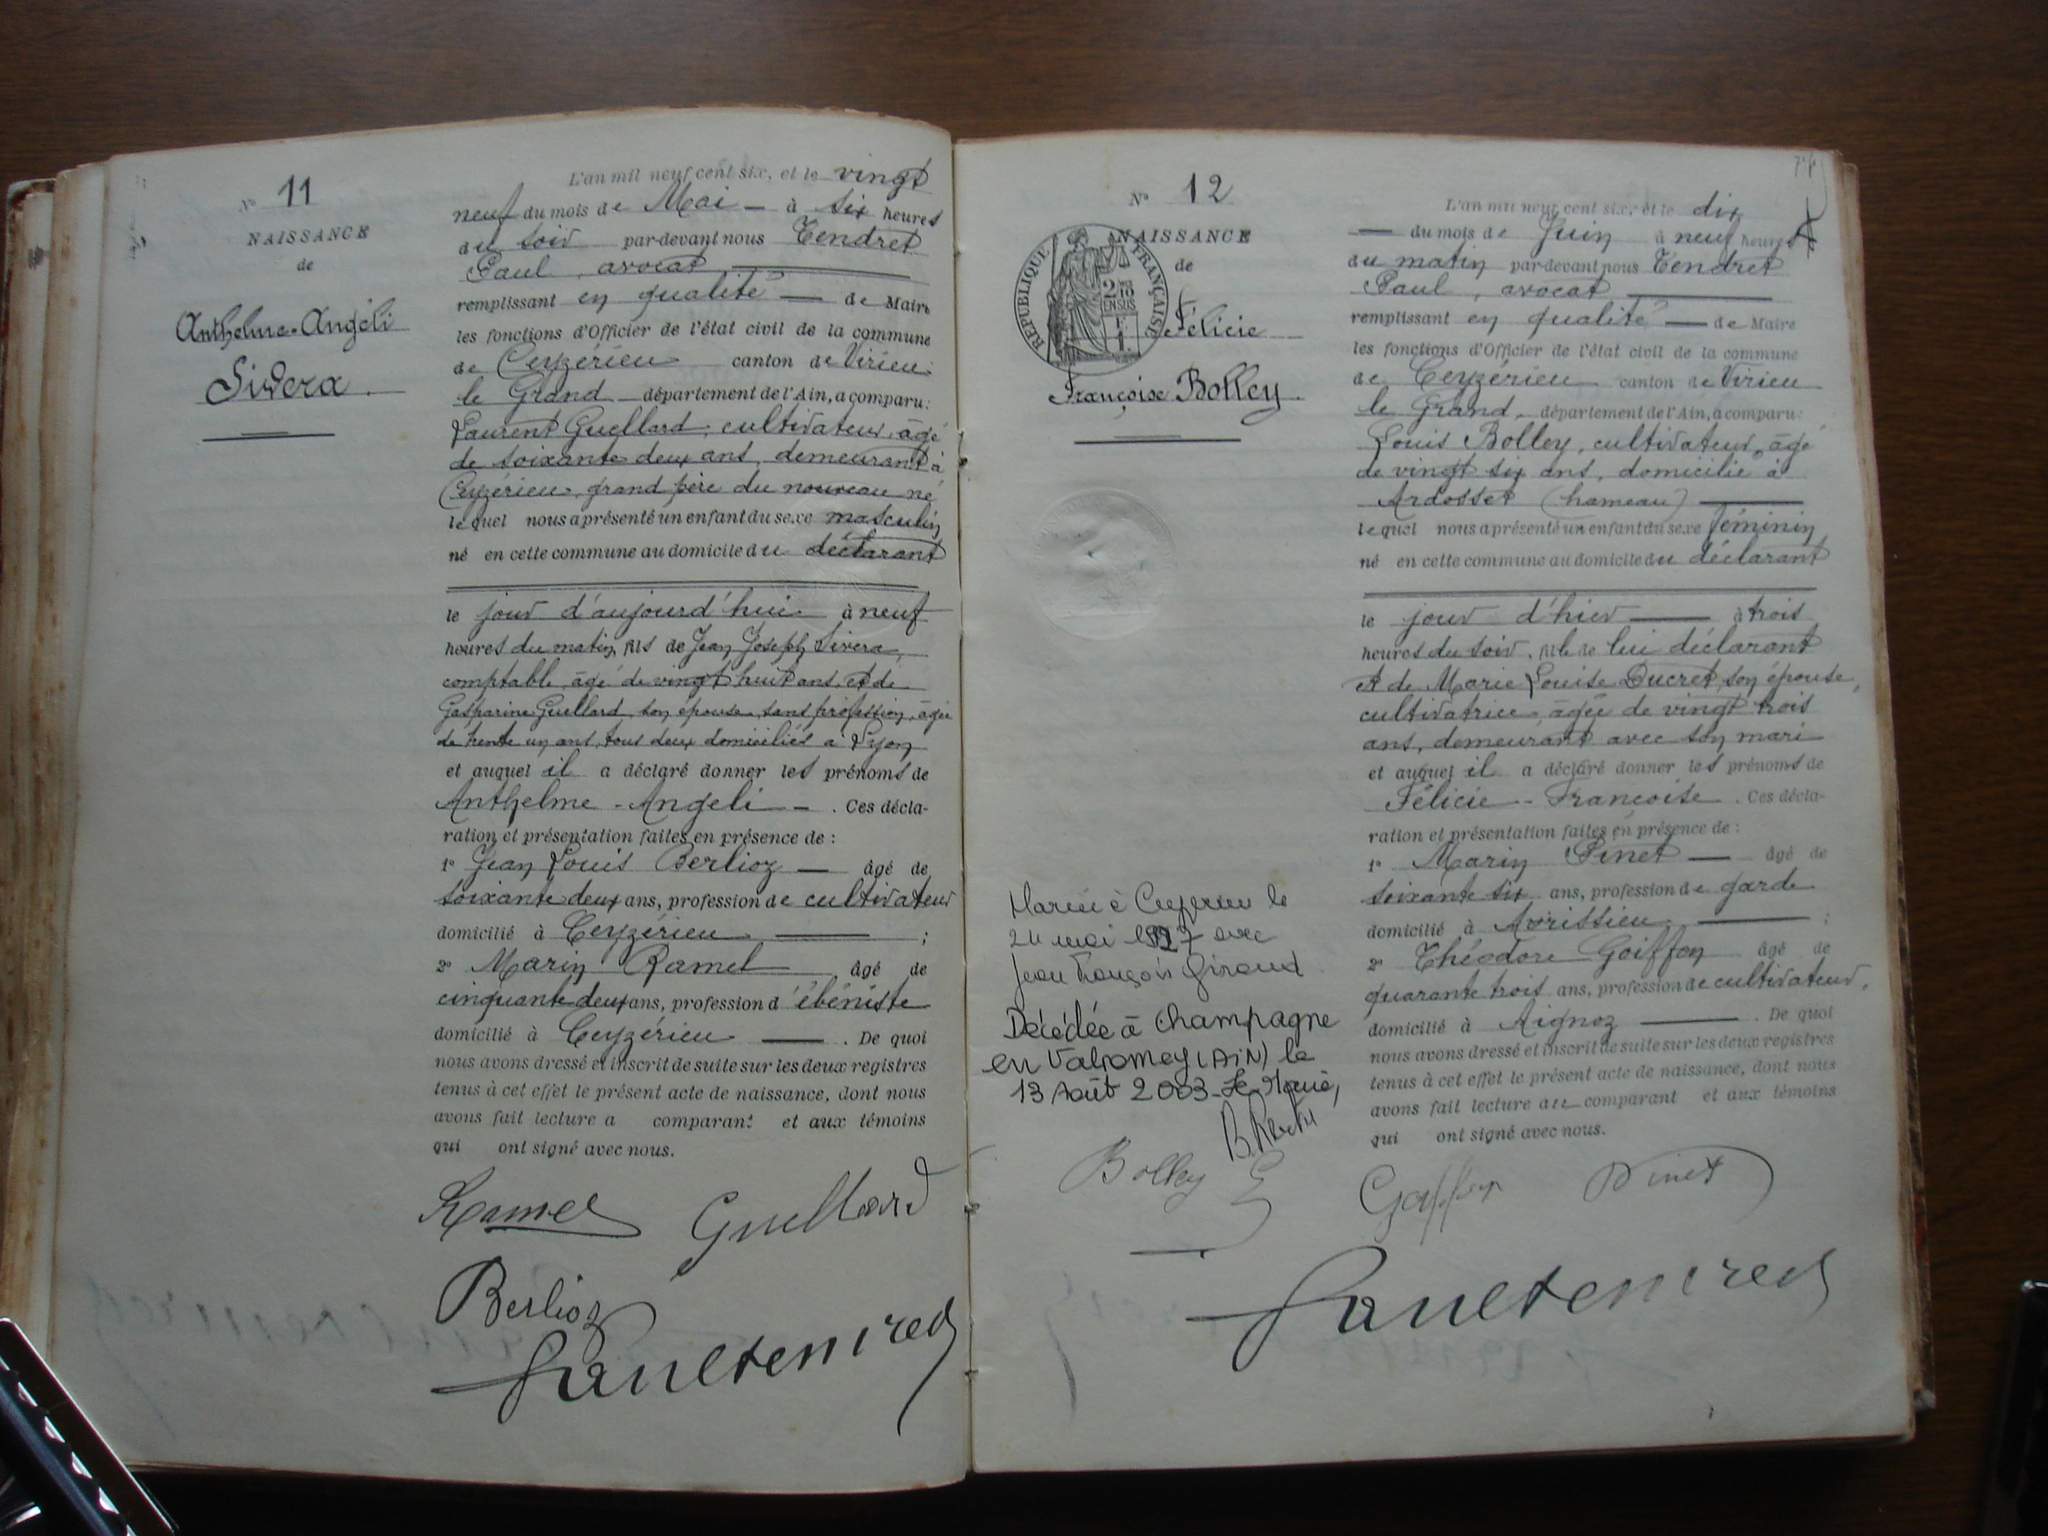 N° 11
NAISSANCE
de
Anthelme-Angeli
Sivera
L'an mil neuf cent six, et le vingt
neuf du mois de Mai — à six heures
du soir par-devant nous Tendret
Paul, avocat
remplissant en qualité — de Maire
les fonctions d'Officier de l'état civil de la commune
de Ceyzérieu canton de Virieu
le Grand département de l'Ain, a comparu:
Laurent Guellard, cultivateur, âgé
de soixante deux ans, demeurant à
Ceyzérieu, grand père du nouveau né
lequel nous a présenté un enfant du sexe masculin
né en cette commune au domicile du déclarant
le jour d'aujourd'hui à neuf
heures du matin, fils de Jean Joseph Sivera,
comptable, âgé de vingt huit ans, et de
Gasparine Guellard, son épouse, sans profession, âgée
de trente un ans, tous deux domiciliés à Lyon
et auquel il a déclaré donner les prénoms de
Anthelme - Angeli — . Ces décla-
ration et présentation faites en présence de :
1° Jean Louis Berlioz — âgé de
soixante deux ans, profession de cultivateur
domicilié à Ceyzérieu ;
2° Marin Ramel âgé de
cinquante deux ans, profession d'ébéniste
domicilié à Ceyzérieu — . De quoi
nous avons dressé et inscrit de suite sur les deux registres
tenus à cet effet le présent acte de naissance, dont nous
avons fait lecture a comparant et aux témoins
qui ont signé avec nous.
Ramel Guellard
Berlioz
Paul Tendret
N° 12
NAISSANCE
de
RÉPUBLIQUE FRANÇAISE
Félicie
Françoise Bolley.
L'an mil neuf cent six, et le dix
— du mois de Juin à neuf heures
du matin par-devant nous Tendret
Paul, avocat
remplissant en qualité — de Maire
les fonctions d'Officier de l'état civil de la commune
de Ceyzérieu canton de Virieu
le Grand, département de l'Ain, a comparu:
Louis Bolley, cultivateur, âgé
de vingt six ans, domicilié à
Ardosset (hameau)
lequel nous a présenté un enfant du sexe féminin
né en cette commune au domicile du déclarant
le jour d'hier — à trois
heures du soir, fille de lui déclarant
et de Marie Louise Ducret, son épouse,
cultivatrice, âgée de vingt trois
ans, demeurant avec son mari
et auquel il a déclaré donner les prénoms de
Félicie - Françoise . Ces décla-
ration et présentation faites en présence de :
1° Marin Pinet — âgé de
soixante six ans, profession de garde
domicilié à Avrissieu ;
2° Théodore Goiffon âgé de
quarante trois ans, profession de cultivateur,
domicilié à Aignoz — . De quoi
nous avons dressé et inscrit de suite sur les deux registres
tenus à cet effet le présent acte de naissance, dont nous
avons fait lecture au comparant et aux témoins
qui ont signé avec nous.
Mariée à Ceyzérieu le
24 mai 1927 avec
Jean François Giraud
Décédée à Champagne
en Valromey (AIN) le
13 Août 2003 - Le Maire,
Bolley Goiffon Pinet
Paul Tendret